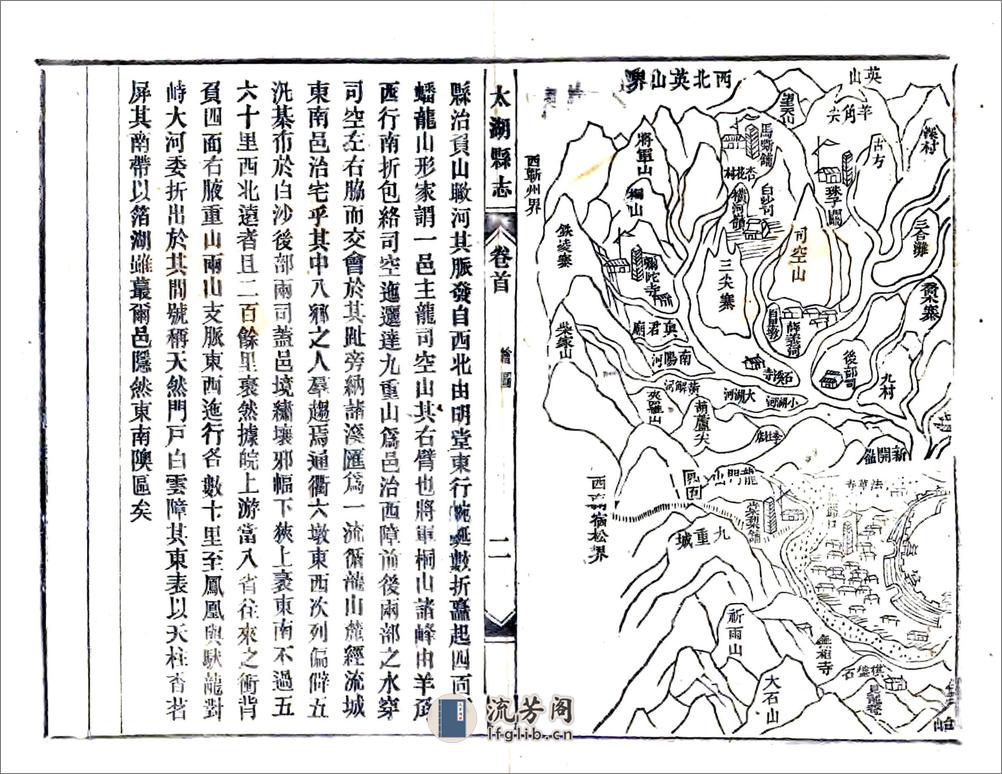 西北英山界
英山
羊角尖
望天山
馬廟鋪
杏花村
橫河鋪
白沙河
將軍山
銅山
古方
后村
司空山
三尖寨
西蘄州界
鐵崚寨
彌陀寺
真君廟
柴家山
南陽河
大湖河
小湖河
葫蘆尖
後部司
九村
西南宿松界
龍門山
法華寺
九重城
祈雨山
大石山
棋盤石
太湖縣志
卷首
繪圖
二
縣治負山瞰河其脈發自西北由明堂東行蜿蜒數折矗起四面
蟠龍山形家謂一邑主龍司空山其右臂也將軍桐山諸峰由羊角
西行南折包絡司空迤邐達九重山爲邑治西障前後兩部之水穿
司空左右脇而交會於其趾旁納諸溪匯爲一流循龍山麓經流城
東南邑治宅乎其中八鄉之人羣趨焉通衢六墩東西次列偏僻五
汛棊布於白沙後部兩司蓋邑境繡壤邪幅下狹上袤東南不過五
六十里西北遠者且二百餘里裒然據皖上游當入省往來之衝背
負四面右腋重山兩山支脈東西迤行各數十里至鳳凰與馱龍對
峙大河委折出於其間號稱天然門戸白雲障其東表以天柱香茗
屏其南帶以箔湖雖蕞爾邑隱然東南隩區矣
流芳阁
lfglib.cn